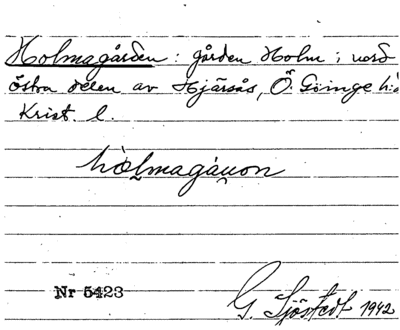 Holmagården: gården Holm i nord
östra delen av Hjärsås, Ö. Göinge h:d
Krist. l.
Nr 5423
G. Sjöstedt 1942